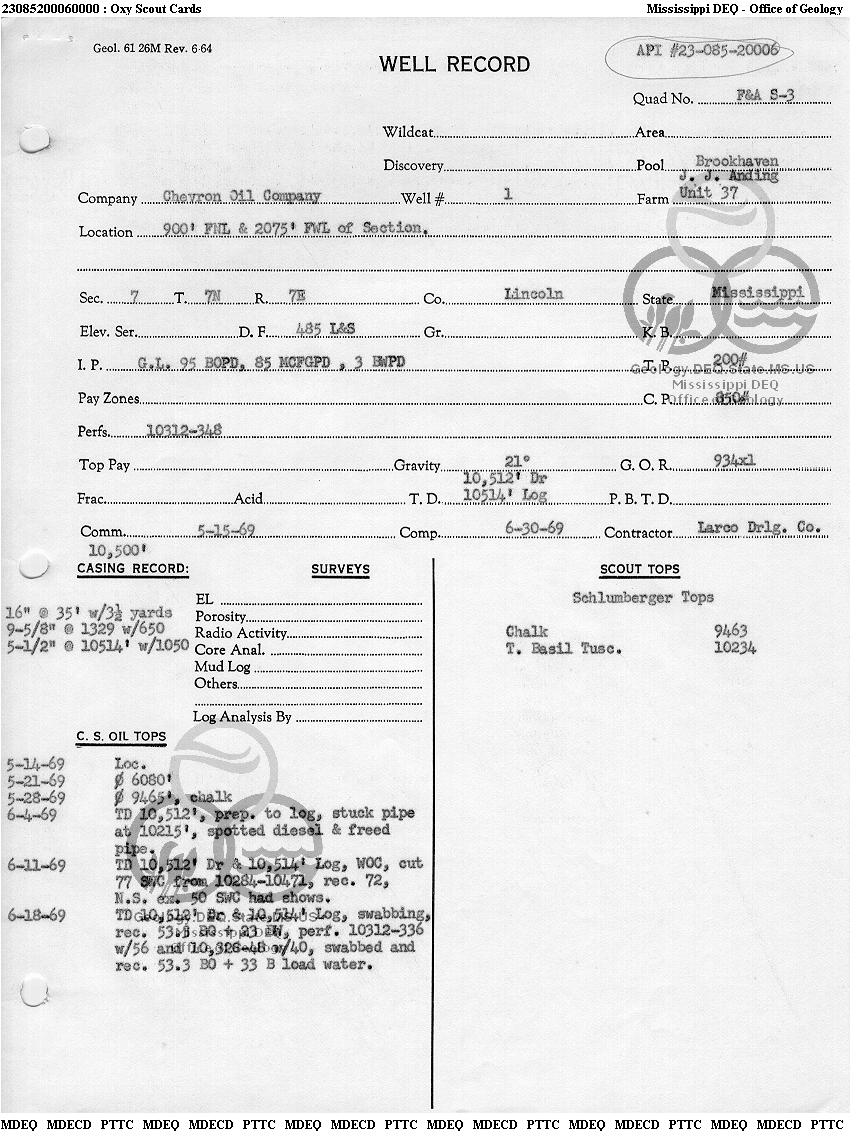 23085200060000 : Oxy Scout Cards Mississippi DEQ - Office of Geology
Geol. 61 26M Rev. 6-64
API #23-085-20006
WELL RECORD
Quad No. F&A S-3
Wildcat Area
Discovery Pool Brookhaven
J. J. Anding
Company Chevron Oil Company Well # 1 Farm Unit 37
Location 900' FNL & 2075' FWL of Section.
Sec. 7 T. 7N R. 7E Co. Lincoln State Mississippi
Elev. Ser. D. F. 485 L&S Gr. K. B.
I. P. G.L. 95 BOPD, 85 MCFGPD , 3 BWPD T. P. 200#
Geology.DEQ.State.MS.US
Mississippi DEQ
Pay Zones C. P. 850#
Office of Geology
Perfs. 10312-348
Top Pay Gravity 21° G. O. R. 934x1
10,512' Dr
Frac. Acid T. D. 10514' Log P. B. T. D.
Comm. 5-15-69 Comp. 6-30-69 Contractor Larco Drlg. Co.
10,500'
CASING RECORD: SURVEYS SCOUT TOPS
Schlumberger Tops
EL
16" @ 35' w/3½ yards Porosity
9-5/8" @ 1329 w/650 Radio Activity Chalk 9463
5-1/2" @ 10514' w/1050 Core Anal. T. Basil Tusc. 10234
Mud Log
Others
Log Analysis By
C. S. OIL TOPS
5-14-69 Loc.
5-21-69 ∅ 6080'
5-28-69 ∅ 9465', chalk
6-4-69 TD 10,512', prep. to log, stuck pipe
at 10215', spotted diesel & freed
pipe.
6-11-69 TD 10,512' Dr & 10,514' Log, WOC, cut
77 SWC from 10284-10471, rec. 72,
N.S. ex. 50 SWC had shows.
6-18-69 TD 10,512' Dr & 10,514' Log, swabbing,
Geology.DEQ.State.MS.US
rec. 53.3 BO + 33 BW, perf. 10312-336
Mississippi DEQ
w/56 and 10,326-48 w/40, swabbed and
Office of Geology
rec. 53.3 BO + 33 B load water.
MDEQ MDECD PTTC MDEQ MDECD PTTC MDEQ MDECD PTTC MDEQ MDECD PTTC MDEQ MDECD PTTC MDEQ MDECD PTTC